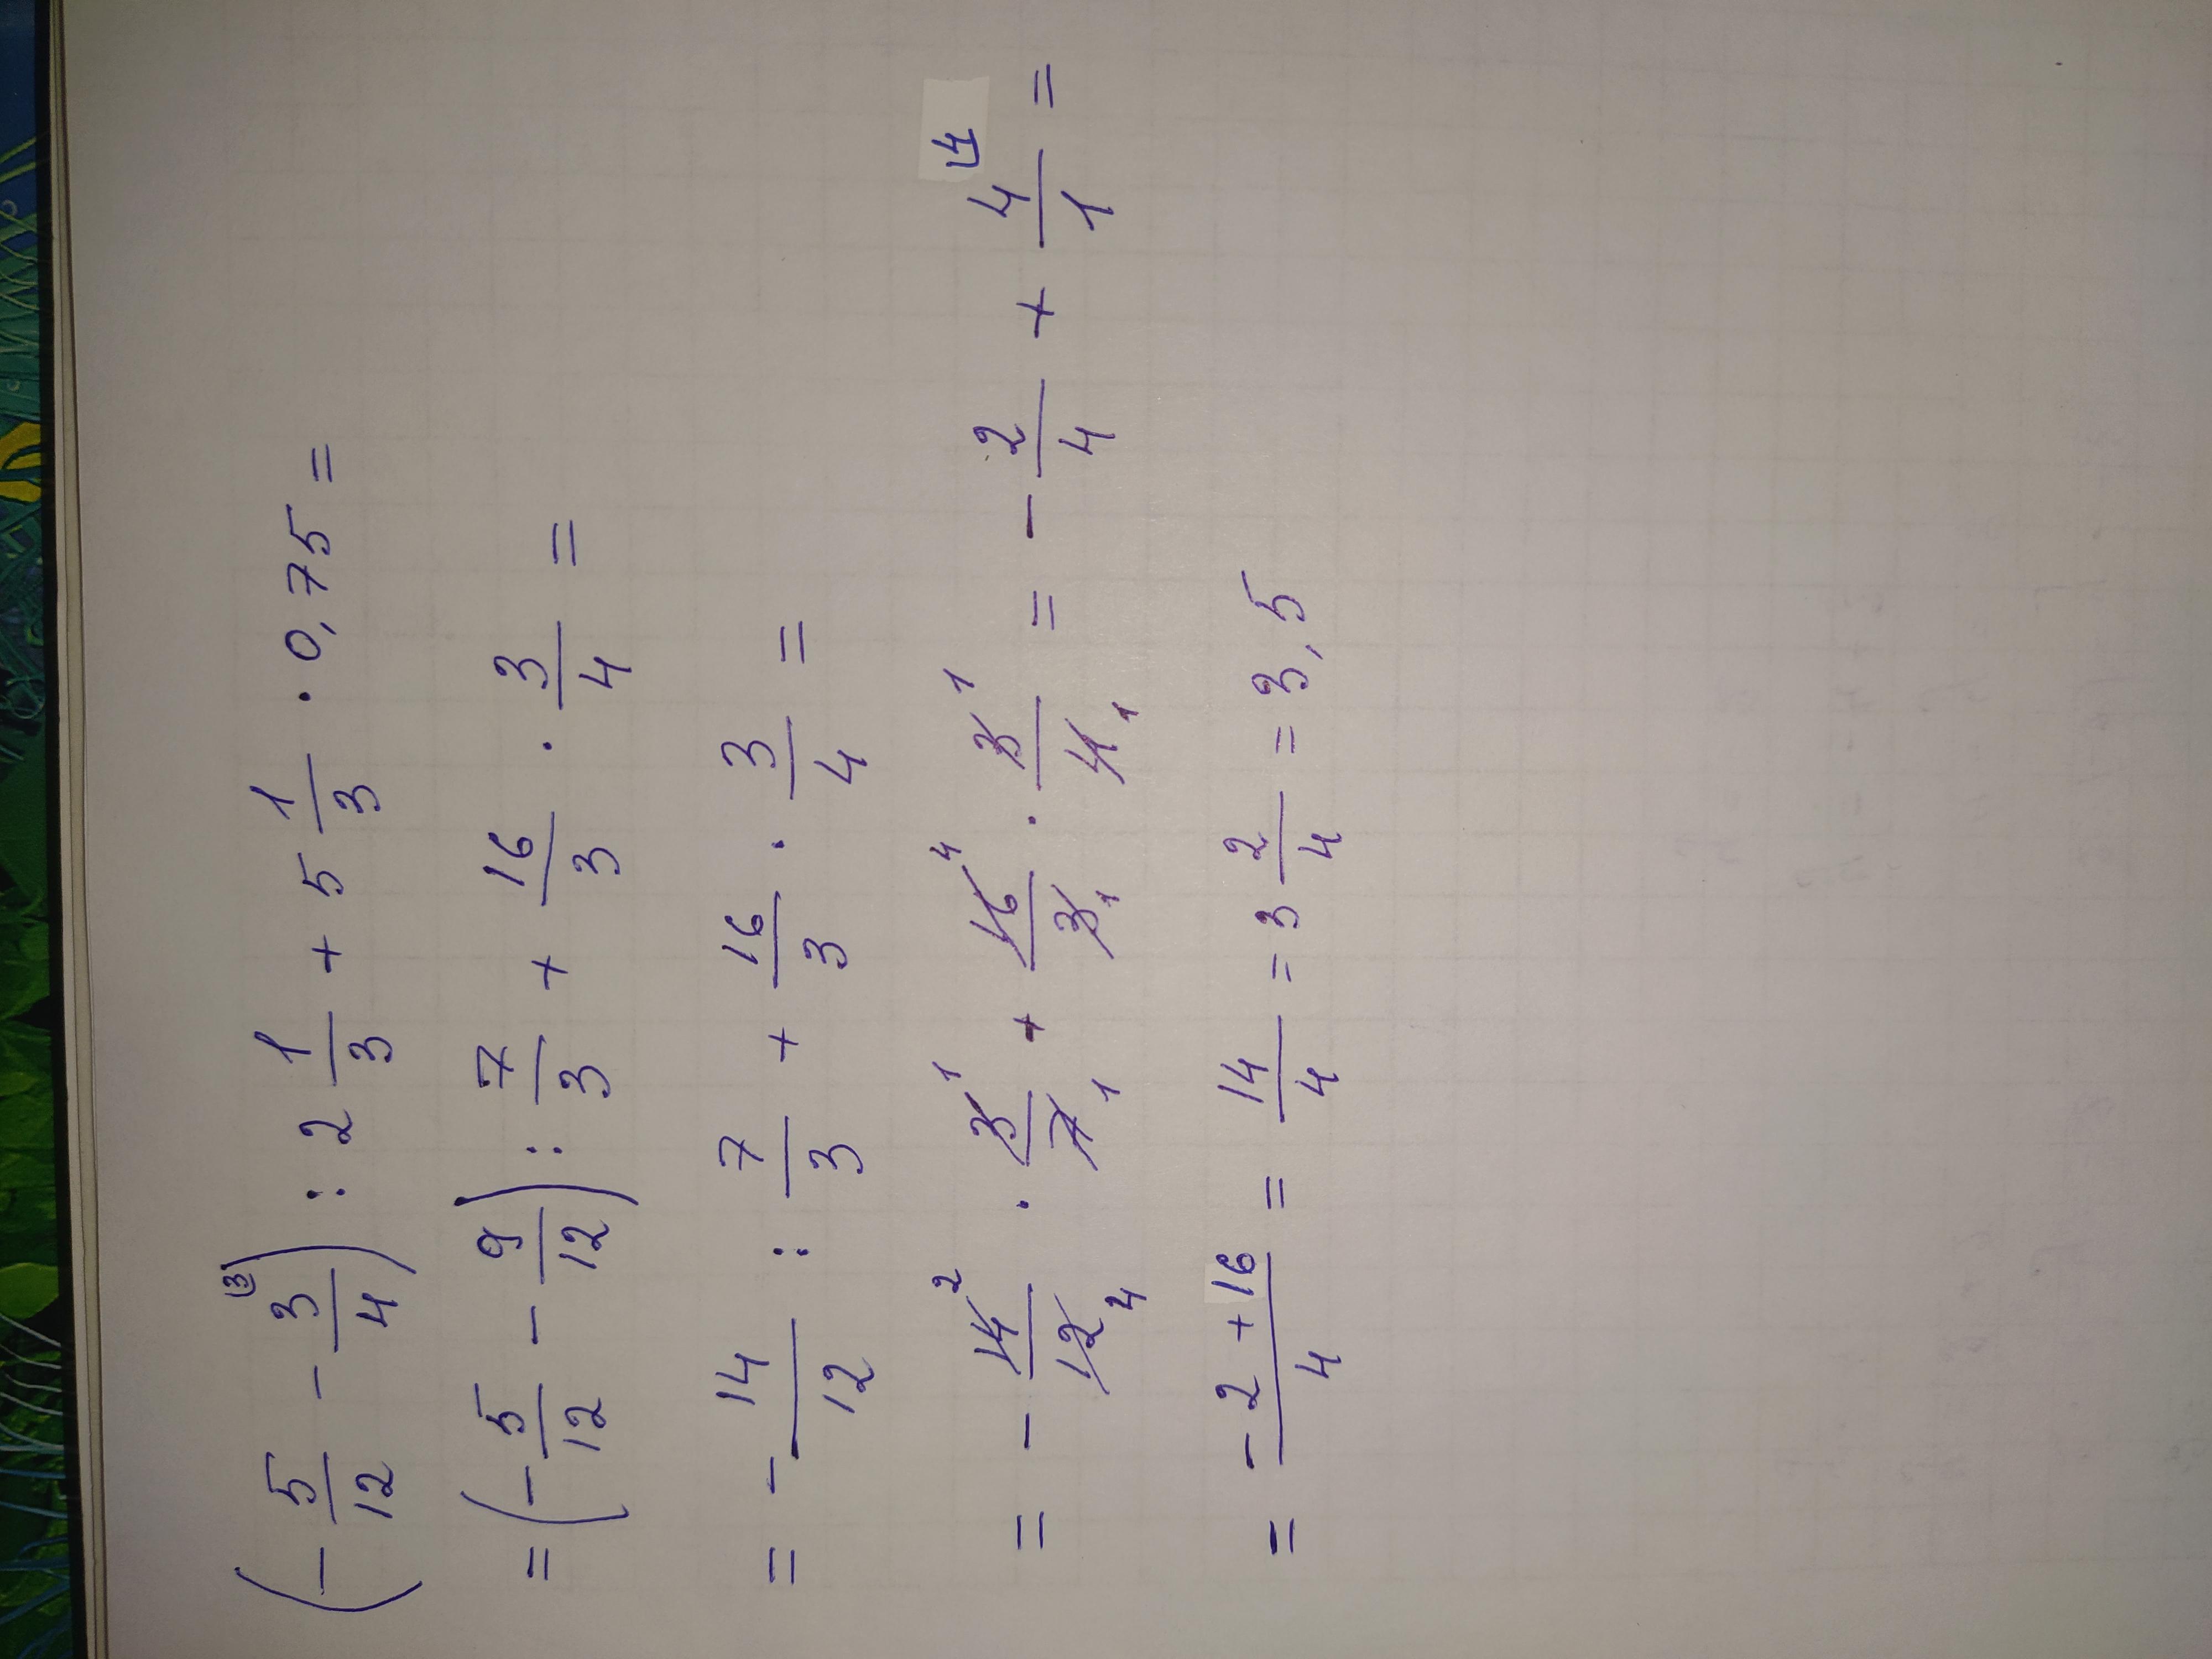 (- 5/12 - 3/4 ⁽³⁾) : 2 1/3 + 5 1/3 · 0,75 =
= (- 5/12 - 9/12) : 7/3 + 16/3 · 3/4 =
= - 14/12 : 7/3 + 16/3 · 3/4 =
= - 14²/12₄ · 3¹/7₁ + 16⁴/3₁ · 3¹/4₁ = - 2/4 + 4/1 ⁴ =
= (-2 + 16)/4 = 14/4 = 3 2/4 = 3,5